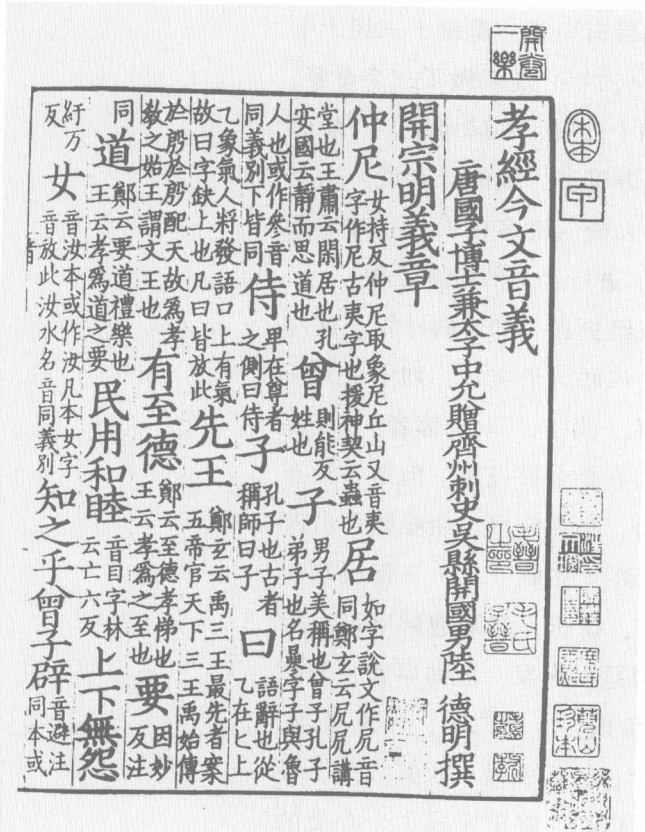 開卷一樂
宋本
甲
孝經今文音義
唐國子博士兼太子中允贈齊州刺史吳縣開國男陸 德明撰
開宗明義章
仲尼女持反仲尼取象尼丘山又音夷字作𡰥古夷字也援神契云蟲也居如字說文作凥音同鄭玄云凥凥講
堂也王肅云閑居也孔安國云靜而思道也曾則能反姓也子男子美稱也曾子孔子弟子也名曑字子與魯
人也或作參音同義別下皆同侍卑在尊者之側曰侍子孔子也古者稱師曰子曰語辭也從乙在匕上
乙象氣人將發語口上有氣故曰字缺上也凡曰皆放此先王鄭玄云禹三王最先者案五帝官天下三王禹始傳
於殷於殷配天故爲孝教之始王謂文王也有至德鄭云至德孝悌也王云孝爲之至也要因妙反注
同道鄭云要道禮樂也王云孝爲道之要民用和睦音目字林云亡六反上下無怨
紆万反女音汝本或作汝凡本女字音放此汝水名音同義別知之乎曾子辟音避注同本或